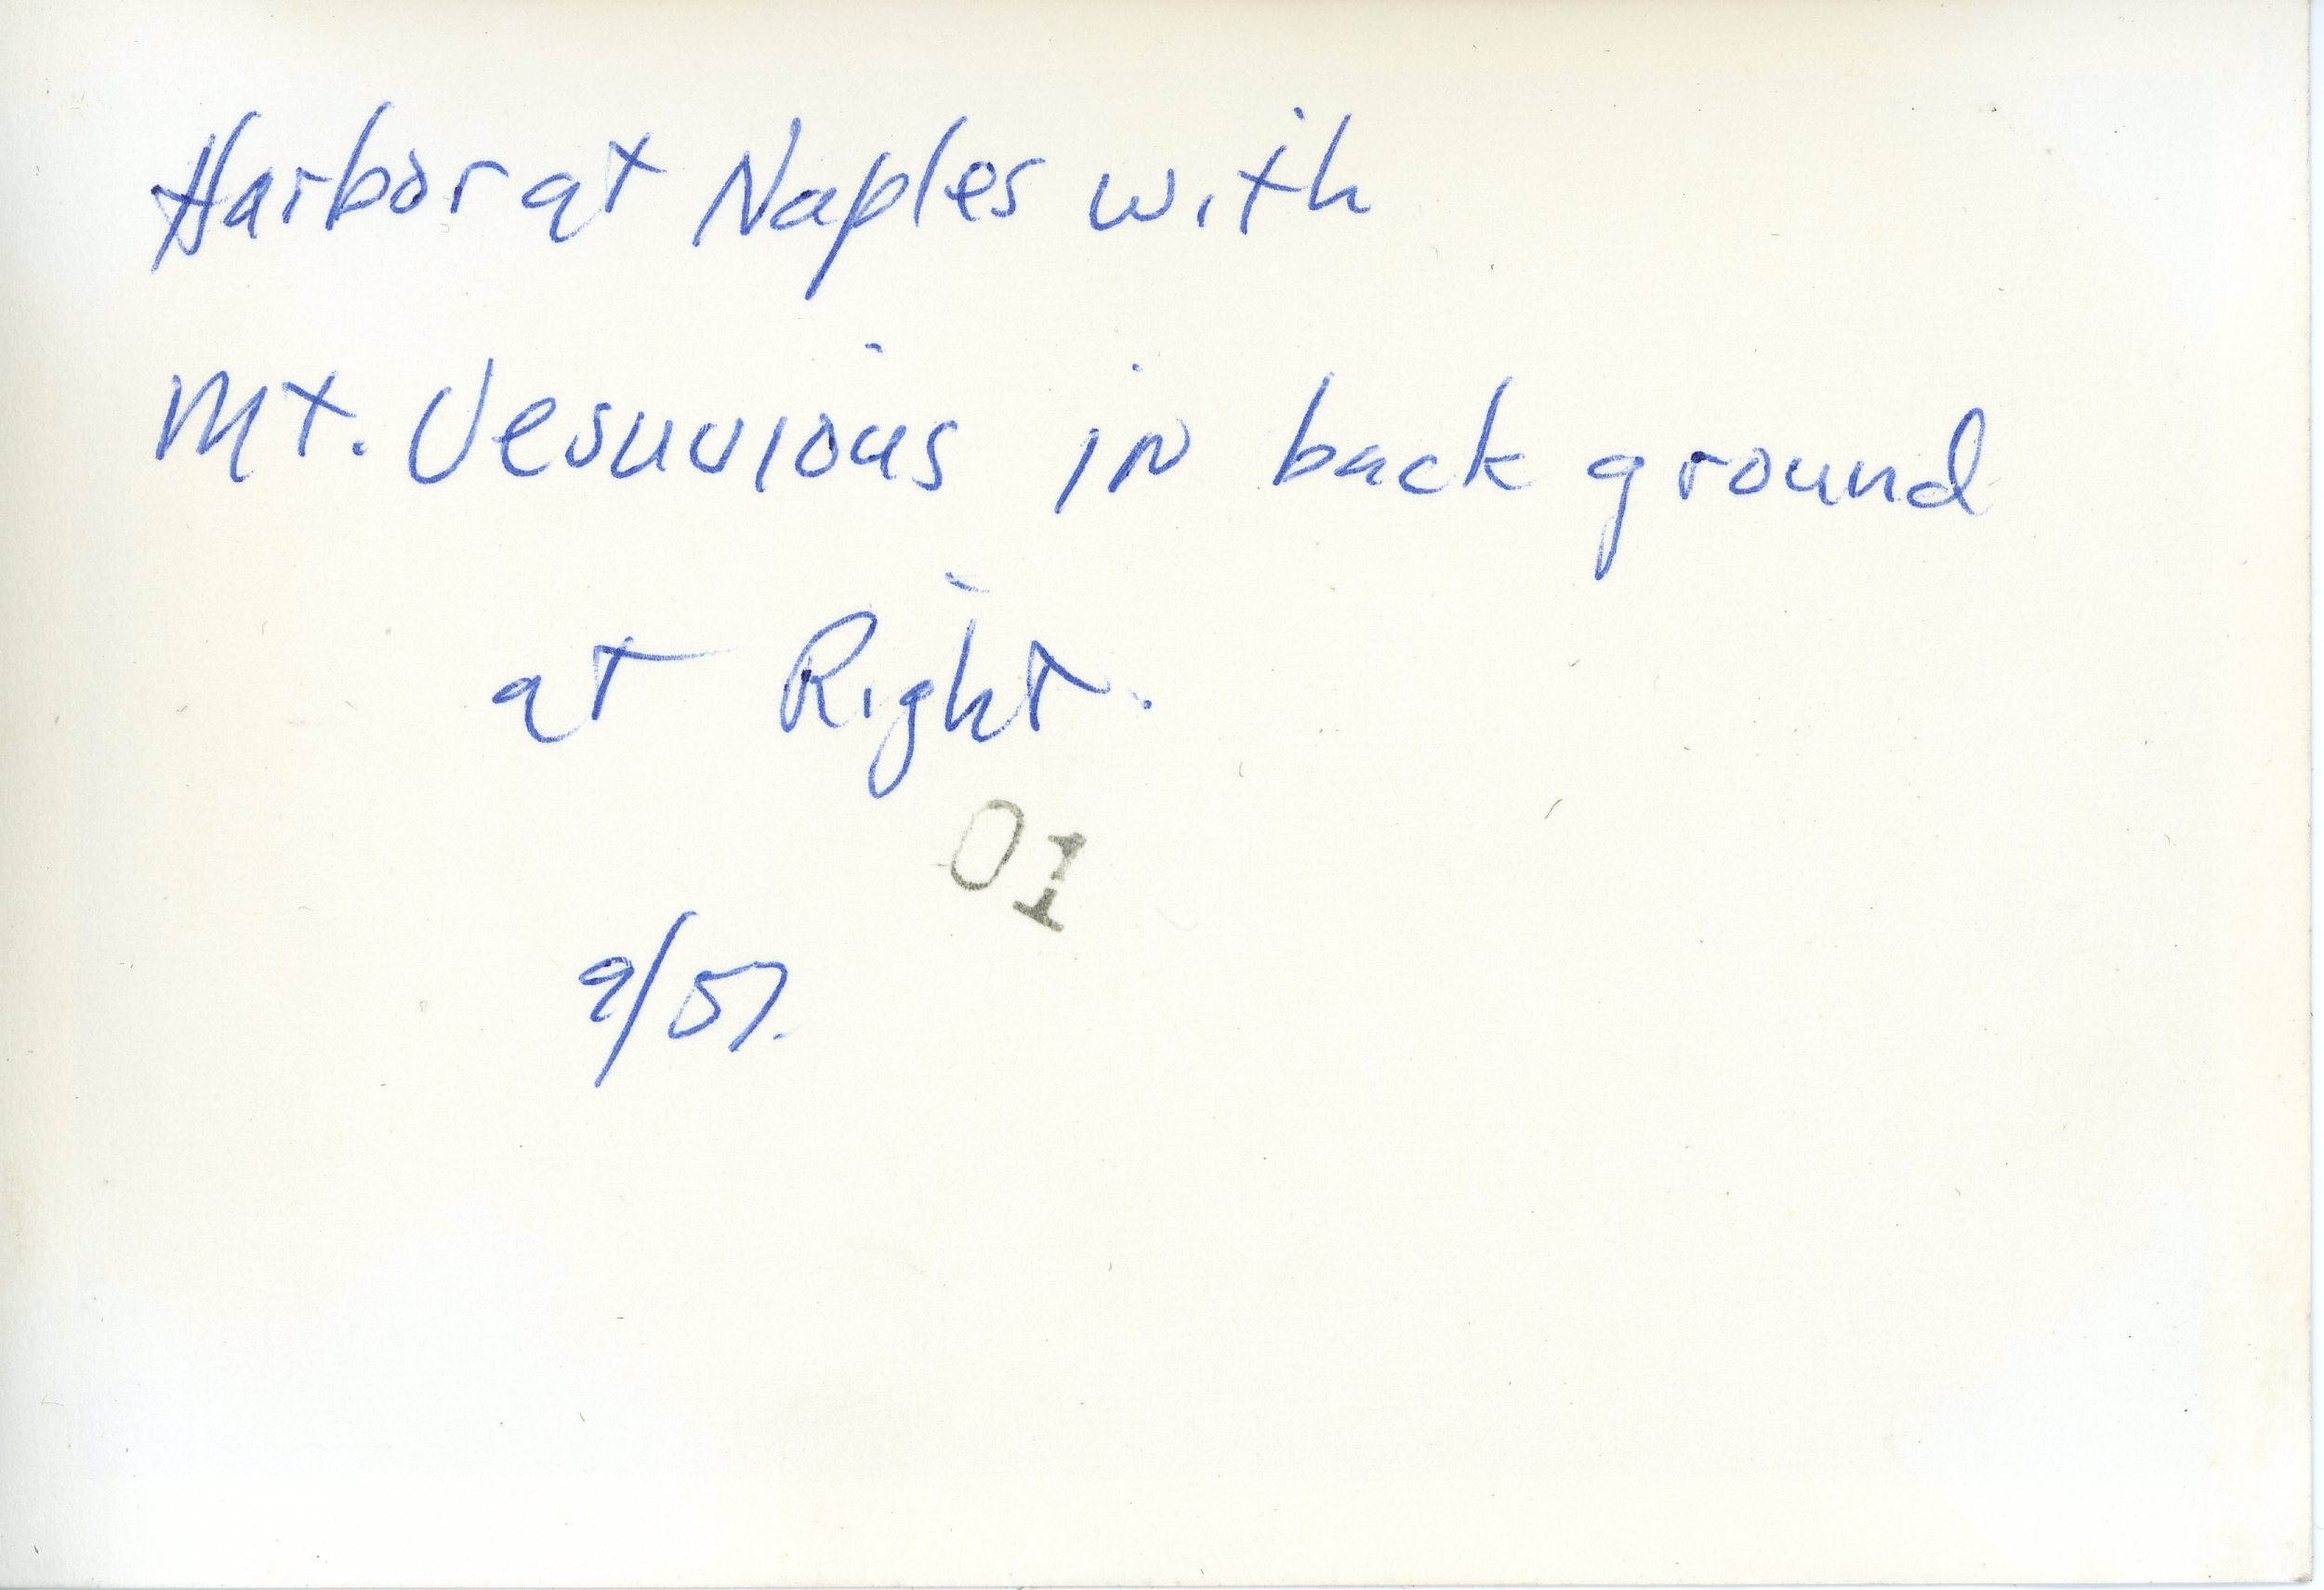 Harbor at Naples with
Mt. Vesuvious in back ground
at Right.
01
9/57.